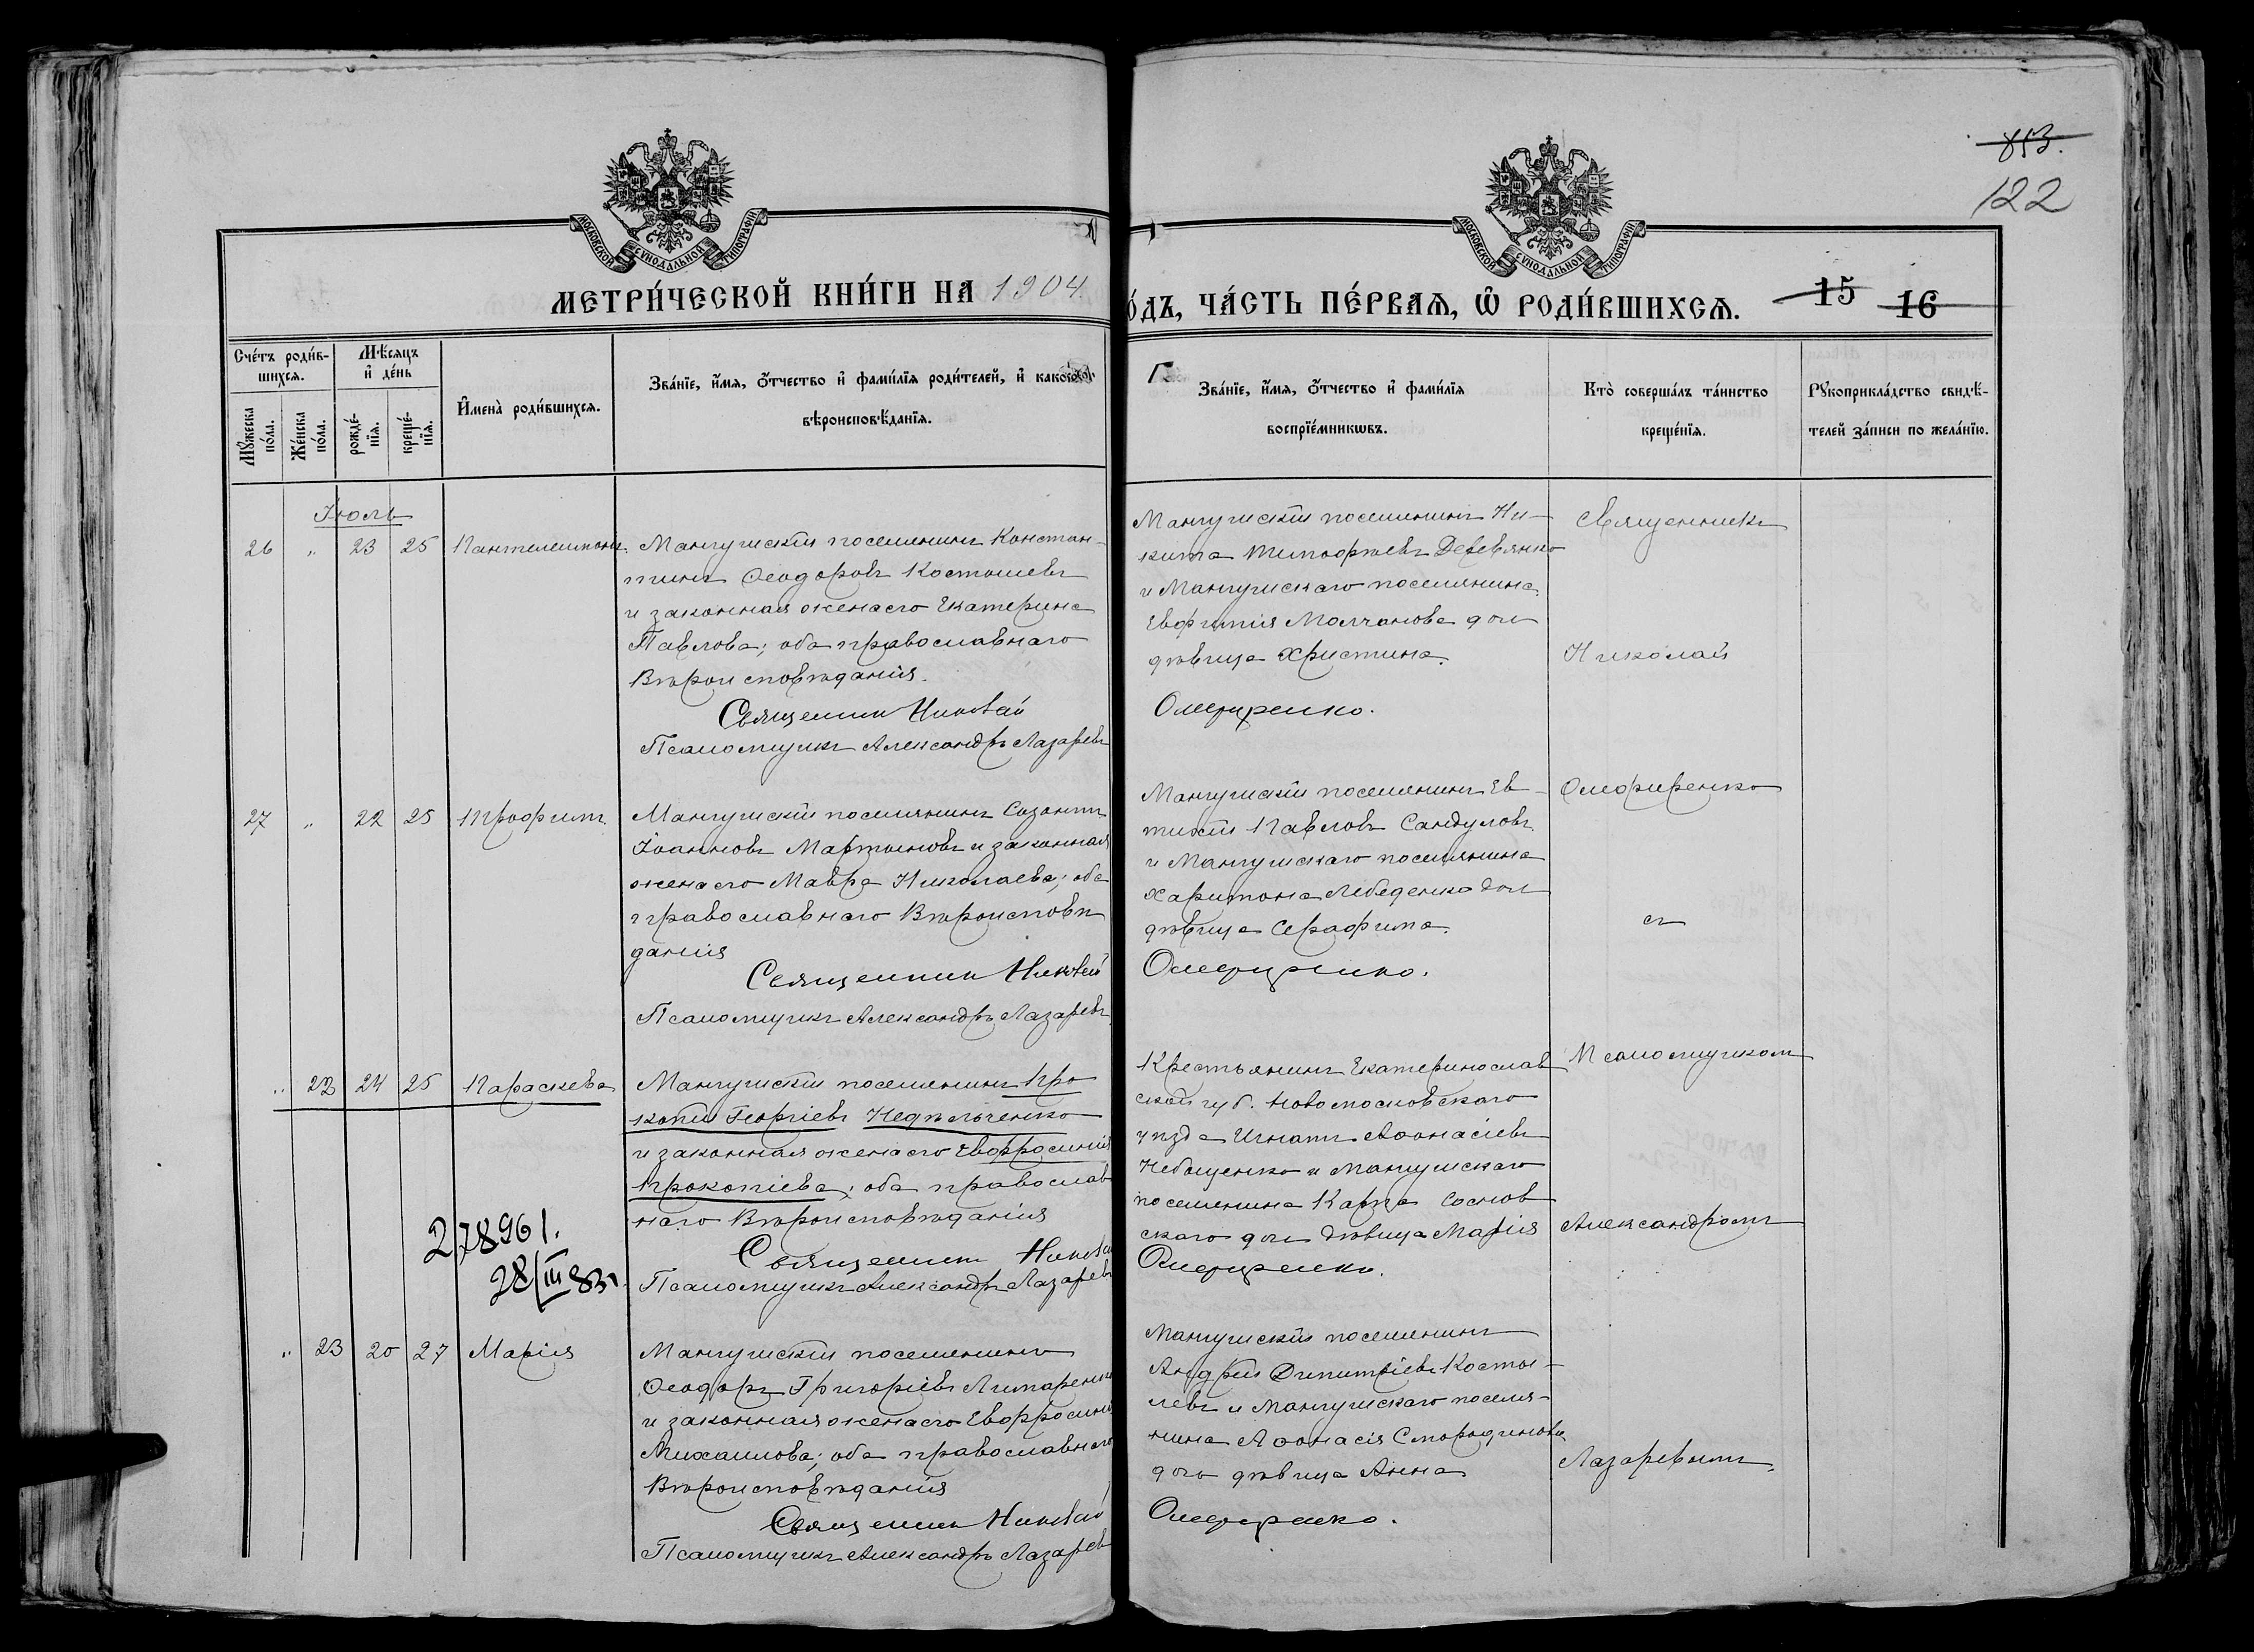 853.
122
МОСКОВСКОЙ СѴНОДАЛЬНОЙ ТИПОГРАФІИ
МОСКОВСКОЙ СѴНОДАЛЬНОЙ ТИПОГРАФІИ
МЕТРИ́ЧЕСКОЙ КНИ́ГИ НА 1904.
О́ДЪ, ЧА́СТЬ ПЕ́РВАѦ, Ѡ҆ РОДИ́ВШИХСѦ.
15 16
Сче́тъ роди́в-
шихсѧ.
Мꙋ́жеска по́ла.
Же́нска по́ла.
Мѣ́сѧцъ
и҆ де́нь
рожде́-
нїѧ.
креще́-
нїѧ.
И҆мена̀ роди́вшихсѧ.
Зва́нїе, и҆́мѧ, ѻ҆́тчество и҆ фами́лїѧ роди́телей, и҆ како
вѣроисповѣ́данїѧ.
Зва́нїе, и҆́мѧ, ѻ҆́тчество и҆ фами́лїѧ
воспрїе́мникѡвъ.
Кто̀ соверша́лъ та́инство
креще́нїѧ.
Рꙋкоприкла́дство свидѣ́-
телей за́писи по жела́нїю.
Іюль
26 " 23 25 Пантелеимонъ
Мангушскій поселянинъ Констан-
тинъ Ѳеодоровъ Костылевъ
и законная жена его Екатерина
Павлова; оба православнаго
Вѣроисповѣданія.
Священник Николай
Псаломщикъ Александръ Лазаревъ
Мангушскій поселянинъ Ни-
кита Тимофѣевъ Деревянко
и Мангушскаго поселянина
Евфимія Молчанова дочь
дѣвица Христина.
Олефиренко.
Священникъ
Николай
27 " 22 25 Трофимъ
Мангушскій поселянинъ Созонтъ
Іоанновъ Мартыновъ и законная
жена его Мавра Николаева; оба
православнаго Вѣроисповѣ
данія
Священник Николай
Псаломщикъ Александръ Лазаревъ
Мангушскій поселянинъ Ев-
тихій Павловъ Сандуловъ
и Мангушскаго поселянина
Харитона Лебеденко дочь
дѣвица Серафима.
Олефиренко.
Олефиренко
съ
" 22 24 25 Параскева
Мангушскій поселянинъ Про
копій Георгіевъ Недѣльченко
и законная жена его Евфросинія
Прокопіева; оба православ
наго Вѣроисповѣданія
Священник Никола
Псаломщикъ Александръ Лазаревъ
278961.
28/III 83г.
Крестьянинъ Екатеринослав
ской губ. Новомосковскаго
уѣзда Игнатъ Аѳанасіевъ
и Мангушскаго
поселянина Карпа Соснов
скаго дочь дѣвица Марія
Олефиренко.
Псаломщикомъ
Александромъ
" 23 20 27 Марія
Мангушскій поселянинъ
Ѳеодоръ Григоріевъ Лимаренко
и законная жена его Евфросинія
Михаилова; оба православнаго
Вѣроисповѣданія
Священник Николай
Псаломщикъ Александръ Лазарев
Мангушскій поселянинъ
Андрей Димитріевъ Косты-
левъ и Мангушскаго поселя-
нина Аѳанасія Смородинова
дочь дѣвица Анна
Олефиренко.
Лазаревымъ.